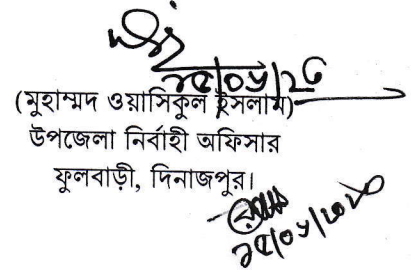 (মুহাম্মদ ওয়াসিকুল ইসলাম)
উপজেলা নির্বাহী অফিসার
ফুলবাড়ী, দিনাজপুর।